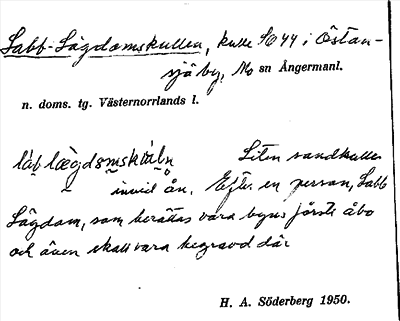 Labb-Lägdomskullen, kulle SO 44 i Östan-
sjö by, Mo sn Ångermanl.
n. doms. tg. Västernorrlands l.
Liten sandkulle
invid ån. Efter en person, Labb
Lägdom, som berättas vara byns förste åbo
och även skall vara begravd där
H. A. Söderberg 1950.